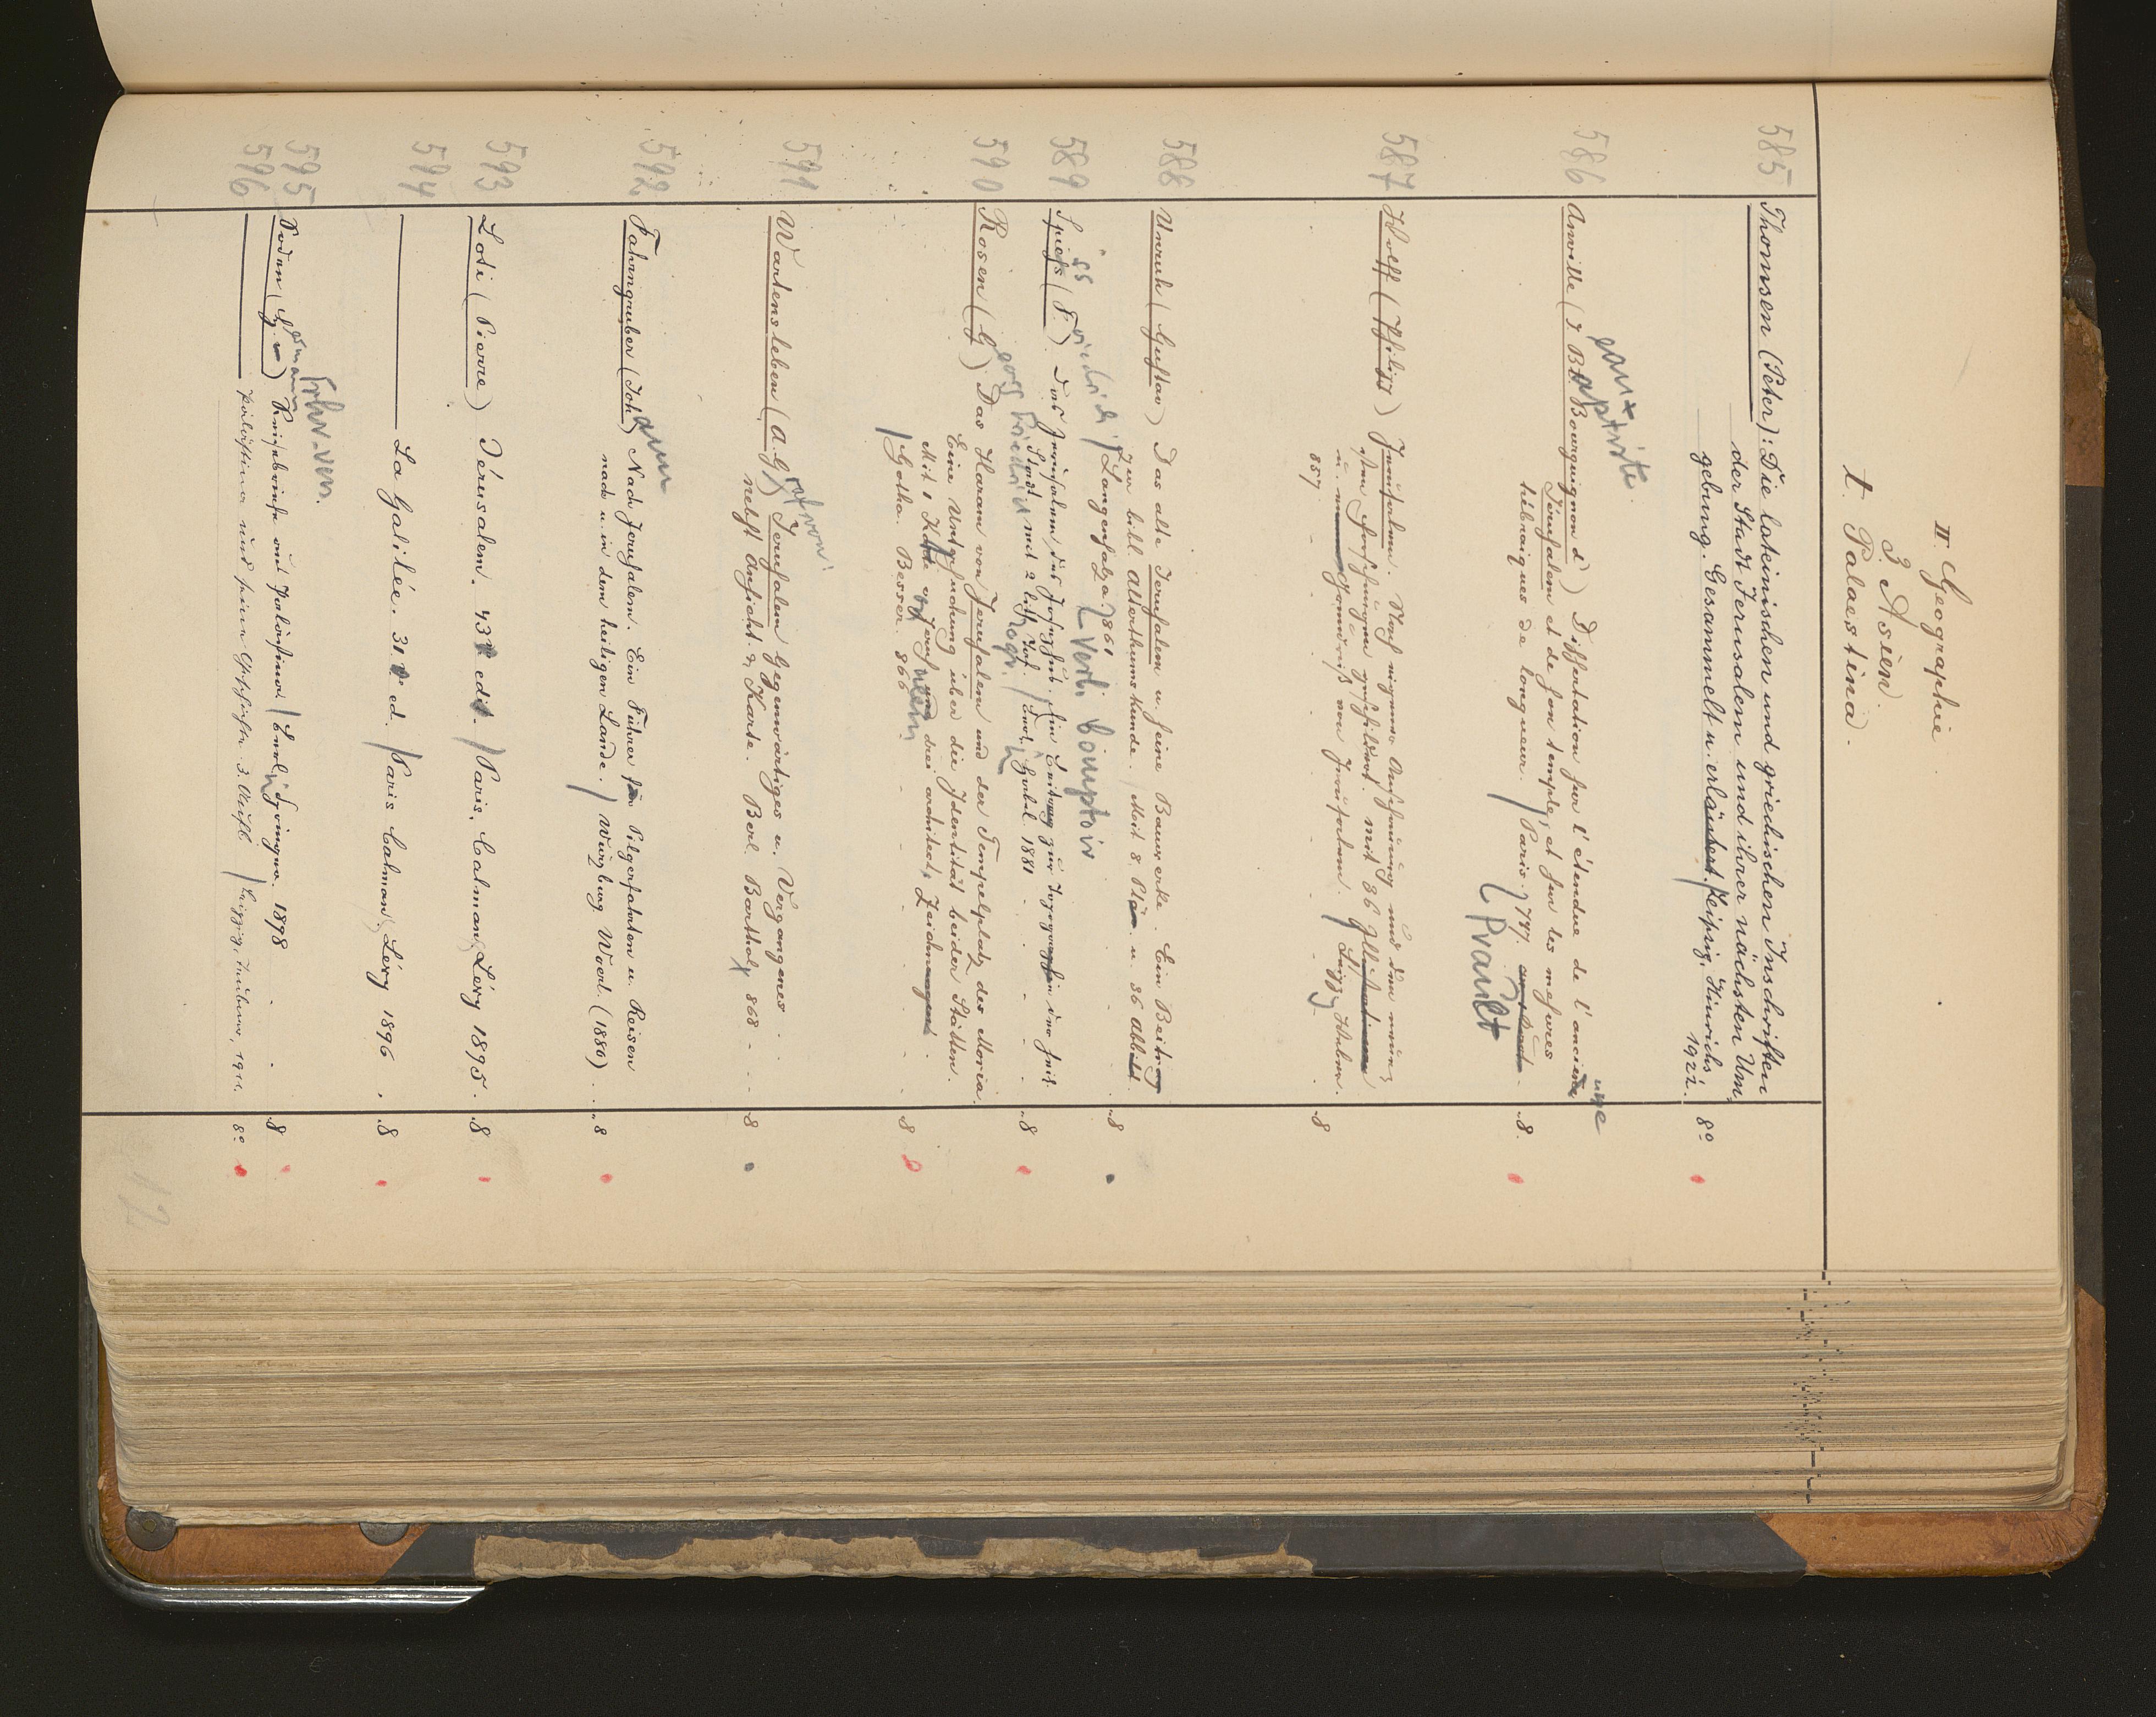 II. Geographie.
3. Asien.
t. Palaestina.
585 Thomsen (Peter): Die lateinischen und griechischen Inschriften
der Stadt Jerusalem und ihrer nächsten Um-
gebung. Gesammelt u. erläutert. Leipzig, Hinrichs
1922. 8°
586 Anville (J. Baptiste Bourguignon d') Dissertation sur l'étendue de l'ancienne
Jérusalem et de son temple, et sur les mesures
hébraiques de longueur. / Paris. 747. 8.
Prault
587 Wolff (Philipp) Jerusalem. Nach eigener Anschauung und den neue-
sten Forschungen geschildert. mit 36
u. Grundriß von Jerusalem. / Leipz. Weber.
857 8
588 Unruh (Gustav) Das alte Jerusalem u. seine Bauwerke. Ein Beitrag
zur bibl. Alterthumskunde. Mit 8 u. 36 Abbild.
/ Langensalza. 861 8
Verl. Comptoir
589 Spiess (Friedrich) Das Jerusalem des Josephus. Ein Beitrag zur Topographie der heil.
Stadt mit 2 lith. / Berl. Habel 1881 8
590 Rosen (Georg Friedrich) Das Haram von Jerusalem und der Tempelplatz des Moria.
Eine Untersuchung über die Identität beider Stätten.
Mit 1 von Jerusalem drei architect. Zeichnungen.
/ Gotha. Besser. 866 8
591 Wartensleben (A. Graf von) Jerusalem Gegenwärtiges u. Vergangenes
nebst Ansicht & Karte. Berl. Barthol 868 8
592 Fahrngruber (Johann) Nach Jerusalem. Ein Führer für Pilgerfahrten u. Reisen
nach u. in dem heiligen Lande. / Würzburg Woerl. (1880) 8
593 Loti (Pierre) Jérusalem. 43 edit. / Paris, Calman Lévy 1895. 8
594 La Galilée. 31 ed. / Paris Calman Lévy 1896 8
595 Soden (Hermann Frhr. von.) Reisebriefe aus Palästina / Berl. Springer. 1898 8
596 Palästina und seine Geschichte 3. Aufl. / Leipzig, Teubner, 1911. 8°
12